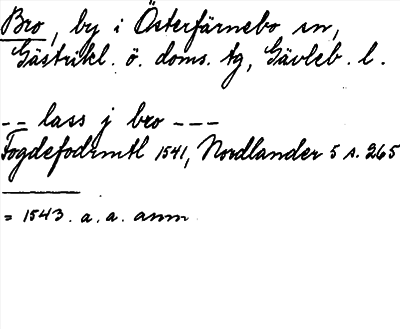 Bro, by i Österfärnebo sn,
Gästrikl. ö. doms. tg, Gävleb. l.
-- lass j bro ---
Fogdefodrmtl 1541, Nordlander 5 s. 265
= 1543. a. a. anm